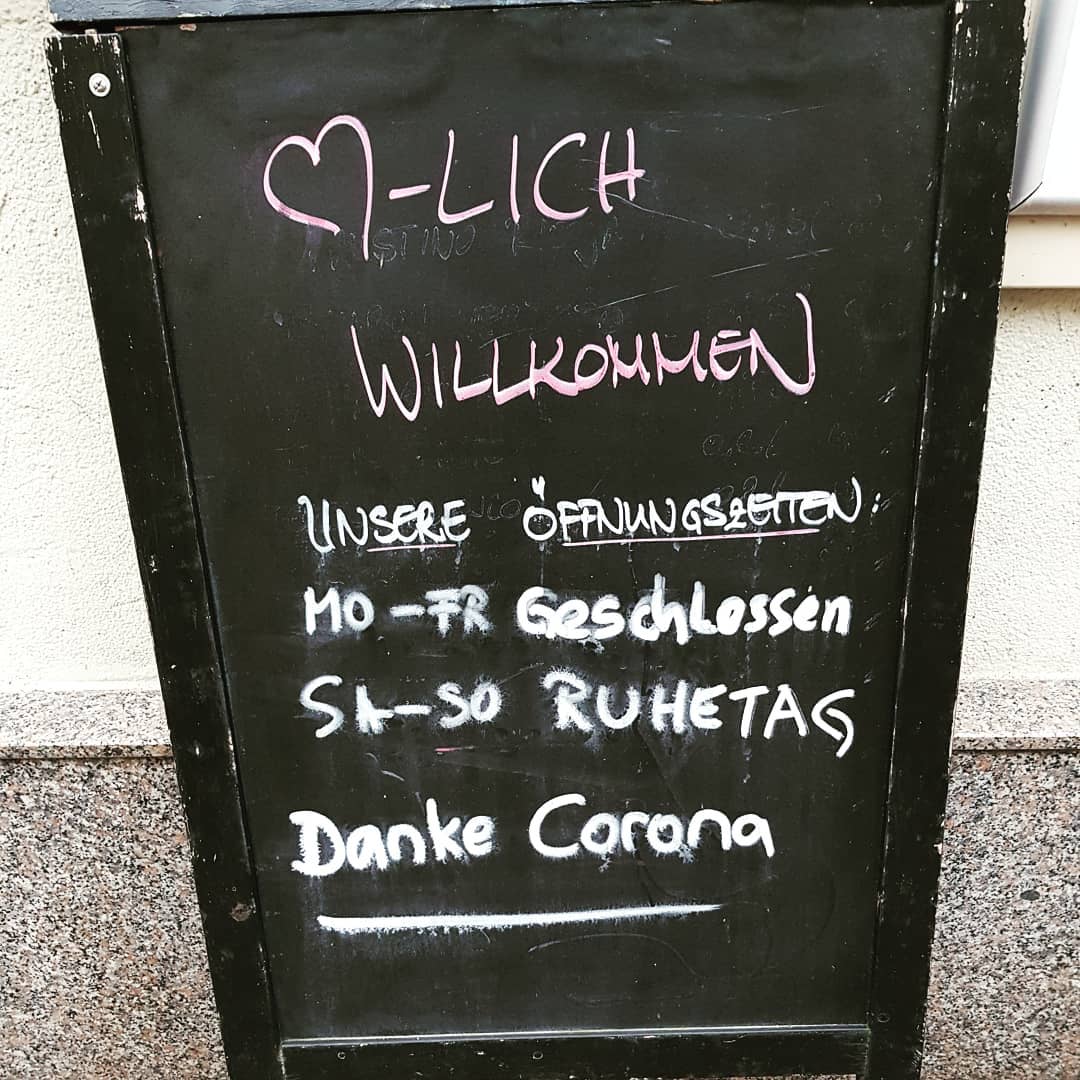 ♡-LICH
WILLKOMMEN
UNSERE ÖFFNUNGSZEITEN:
MO-FR Geschlossen
SA-SO RUHETAG
Danke Corona